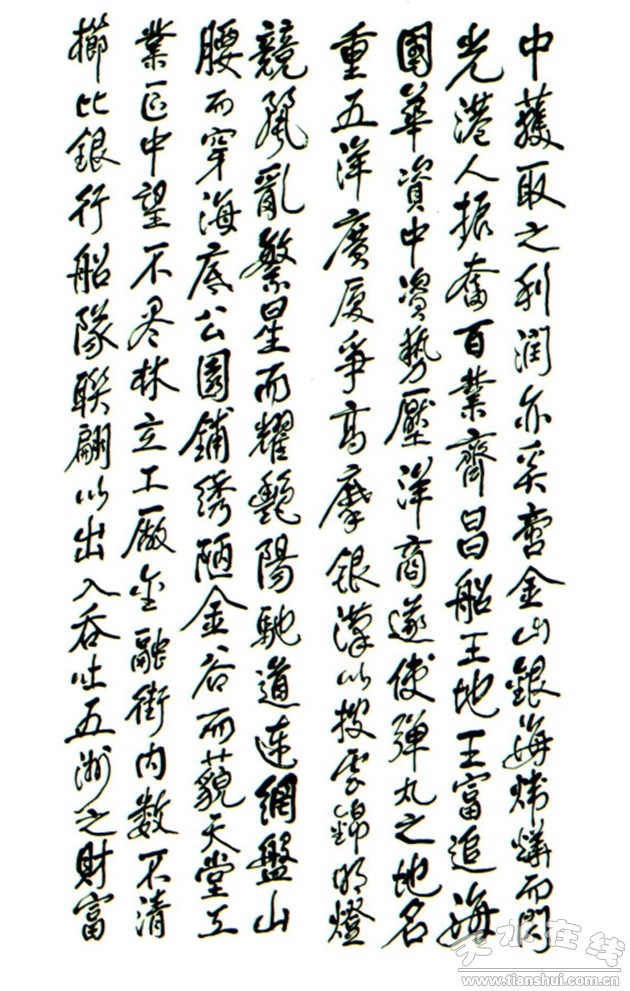 中獲取之利潤亦奚啻金山銀海煒燁而閃
光港人振奮百業齊昌船王地王富追海
國華資中資勢壓洋商遂使彈丸之地名
重五洋廣厦爭高摩銀漢以搜雲錦明燈
競麗亂繁星而耀艷陽馳道連網盤山
腰而穿海底公園鋪綉陋金谷而藐天堂工
業區中望不尽林立工廠金融街内数不清
櫛比銀行船隊聯翩以出入吞吐五洲之財富
天水在线
www.tianshui.com.cn